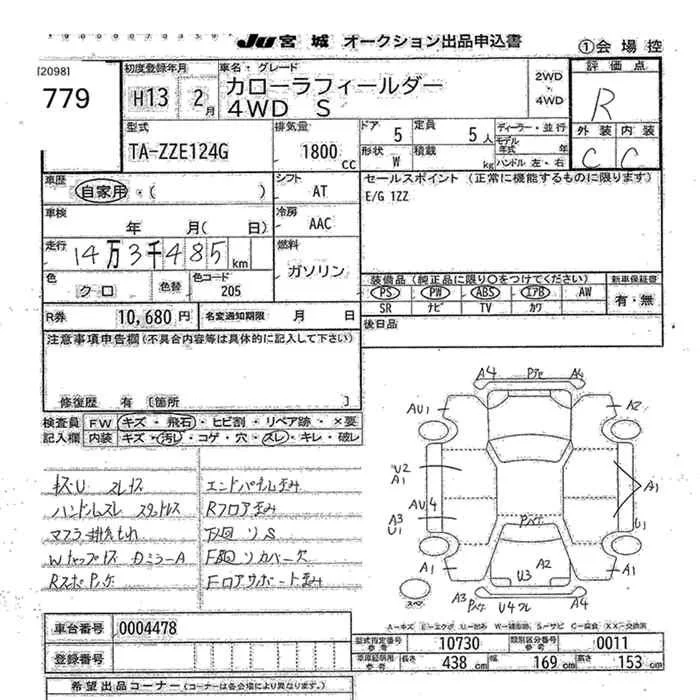 JU宮城 オークション出品申込書
①会場控
[2098]
779
初度登録年月
H13 2月
車名・グレード
カローラフィールダー
4WD S
2WD
・
4WD
評価点
R
外装 内装
C C
型式
TA-ZZE124G
排気量
1800 cc
ドア 5
定員 5人
形状 W
積載 kg
ディーラー・並行
モデル年式 年
ハンドル 左・右
車歴
自家用・( )
シフト
AT
セールスポイント (正常に機能するものに限ります)
E/G 1ZZ
車検
年 月( 日)
冷房
AAC
走行
14万3千485km
燃料
ガソリン
色
クロ
色替
色コード
205
装備品 (純正品に限り○をつけてください)
新車保証書
PS PW ABS エアB AW
有・無
SR ナビ TV カワ
R券 10,680円
名変通知期限 月 日
後日品
注意事項申告欄(不具合内容等は具体的に記入して下さい)
修復歴 有 [箇所
検査員
記入欄
FW キズ・飛石・ヒビ割・リペア跡・×要
内装 キズ・汚レ・コゲ・穴・スレ・キレ・破レ
キズU スレキズ
エンドパネル歪み
ハンドルスレ
Rフロア歪み
下廻りサビ
Rスポ
Fロアサポート歪み
A4 A4
AU1 A2
U2
A1
AU4
A1
A3
U1
U1
A1 A1
A2
U3
A3
U4
A4
スペア
A-キズ E-エクボ U-凹み W-補修跡 S-サビ C-腐食 XX-交換済
車台番号 0004478
登録番号
型式指定番号 参考 10730
類別区分番号 参考 0011
車庫証明用 参考 長さ 438cm 幅 169cm 高さ 153cm
希望出品コーナー(コーナーは各会場により異なります。)